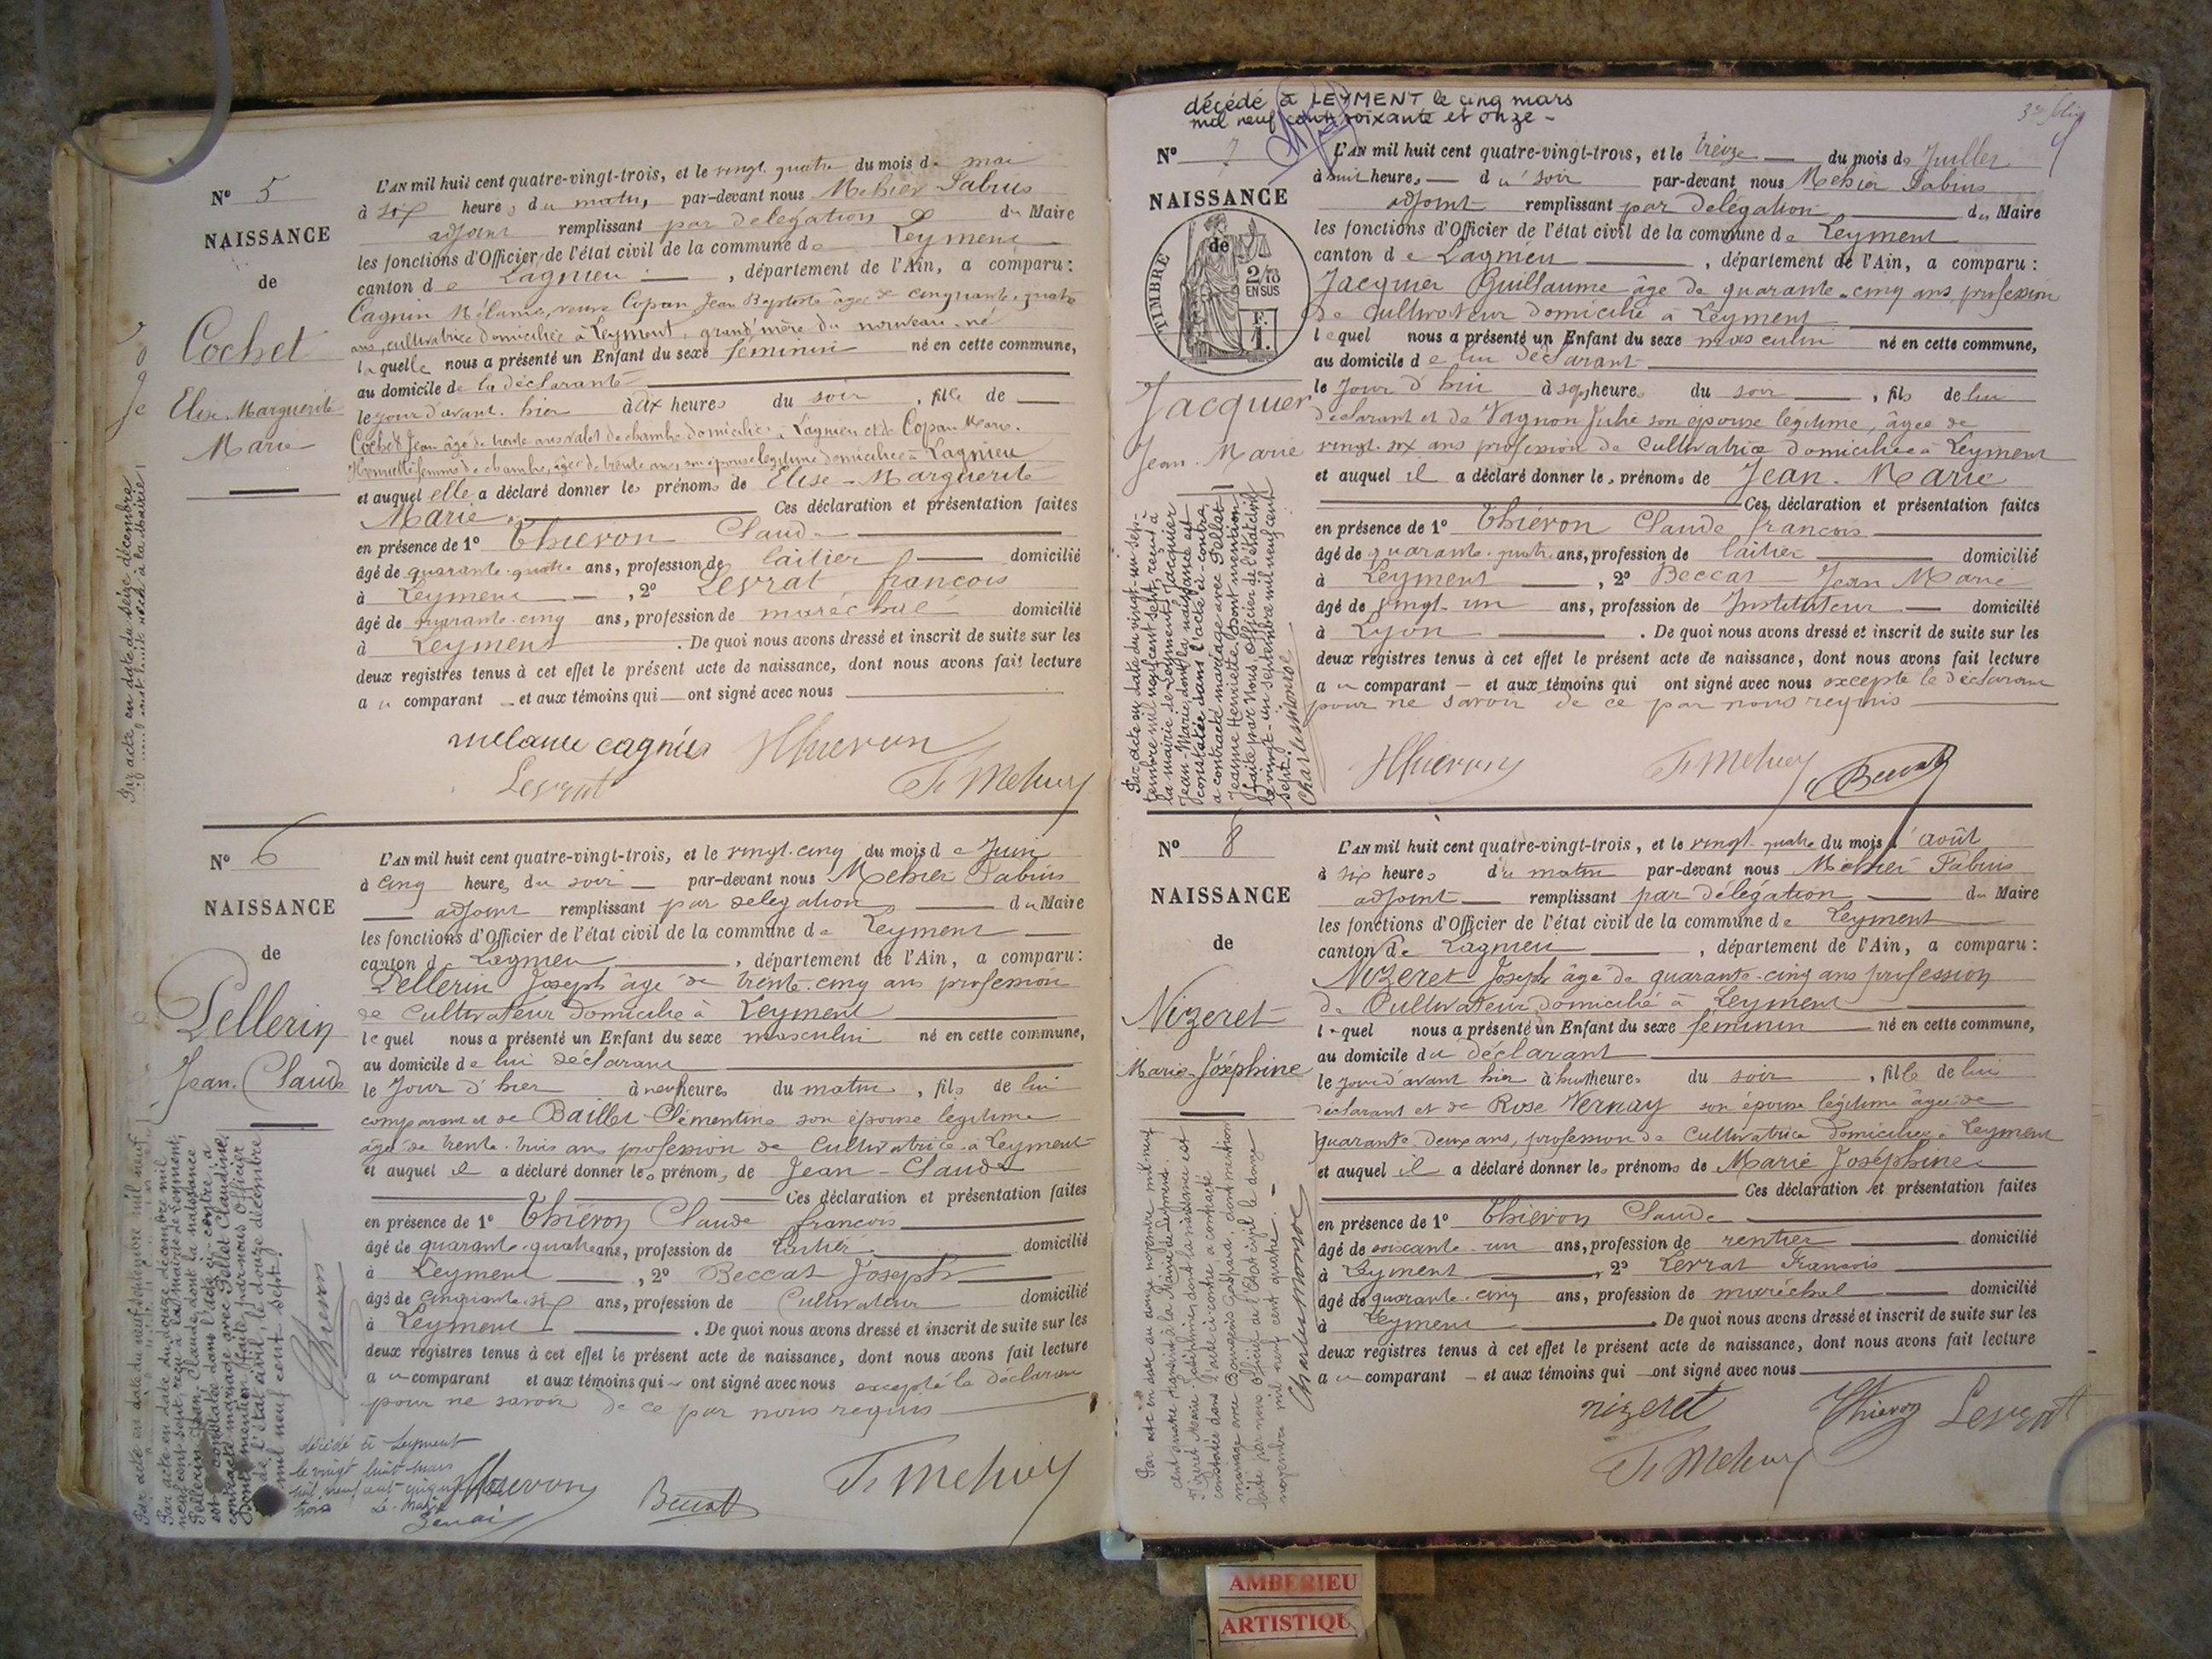 N° 5
NAISSANCE
de
Cochet
Elise Marguerite
Marie
L'AN mil huit cent quatre-vingt-trois, et le vingt quatre du mois de mai
à six heures du matin, par-devant nous
adjoint remplissant par délégation du Maire
les fonctions d'Officier de l'état civil de la commune de Leyment
canton de Lagnieu, département de l'Ain, a comparu:
Cagnin Mélanie, veuve Copan Jean Baptiste âgée de cinquante quatre
ans, cultivatrice domiciliée à Leyment, grand'mère du nouveau-né
laquelle nous a présenté un Enfant du sexe féminin né en cette commune,
au domicile de la déclarante
le jour d'avant hier à dix heures du soir, fille de
Cochet Jean âgé de trente ans valet de chambre domicilié à Lagnieu et de Copan Marie
Henriette femme de chambre, âgée de trente ans, son épouse légitime domiciliée à Lagnieu
et auquel elle a déclaré donner les prénoms de Elise-Marguerite
Marie. Ces déclaration et présentation faites
en présence de 1° Thiévon Claude
âgé de quarante quatre ans, profession de laitier domicilié
à Leyment, 2° Levrat françois
âgé de quarante-cinq ans, profession de maréchal domicilié
à Leyment. De quoi nous avons dressé et inscrit de suite sur les
deux registres tenus à cet effet le présent acte de naissance, dont nous avons fait lecture
au comparant et aux témoins qui ont signé avec nous
Levrat
Par acte en date du seize décembre
N° 6
NAISSANCE
de
Pellerin
Jean Claude
L'AN mil huit cent quatre-vingt-trois, et le vingt-cinq du mois de Juin
à cinq heures du soir par-devant nous
adjoint remplissant par délégation du Maire
les fonctions d'Officier de l'état civil de la commune de Leyment
canton de Lagnieu, département de l'Ain, a comparu:
Pellerin Joseph âgé de trente-cinq ans profession
de Cultivateur domicilié à Leyment
lequel nous a présenté un Enfant du sexe masculin né en cette commune,
au domicile de lui déclarant
le Jour d'hier à neuf heures du matin, fils de lui
comparant et de Baillet Clémentine son épouse légitime
âgée de trente-trois ans profession de Cultivatrice à Leyment
et auquel il a déclaré donner les prénoms de Jean-Claude
Ces déclaration et présentation faites
en présence de 1° Thiévon Claude françois
âgé de quarante-quatre ans, profession de laitier domicilié
à Leyment, 2° Beccat Joseph
âgé de cinquante-six ans, profession de Cultivateur domicilié
à Leyment. De quoi nous avons dressé et inscrit de suite sur les
deux registres tenus à cet effet le présent acte de naissance, dont nous avons fait lecture
au comparant et aux témoins qui ont signé avec nous excepté le déclarant
pour ne savoir de ce par nous requis
Par acte en date du douze décembre mil
neuf cent sept, reçu à la mairie de Leyment,
Pellerin Jean Claude dont la naissance
est constatée dans l'acte ci-contre, a
contracté mariage avec Pellet Claudine,
Dont mention faite par nous Officier
de l'état civil, le douze décembre
mil neuf cent sept.
décédé à Leyment
le vingt huit mars
mil neuf cent cinquante
trois
Le Maire
décédé à LEYMENT le cinq mars
mil neuf cent soixante et onze -
N° 7
NAISSANCE
de
TIMBRE
2/10
EN SUS
Jacquier
Jean-Marie
L'AN mil huit cent quatre-vingt-trois, et le treize du mois de Juillet
à huit heures du soir par-devant nous
adjoint remplissant par délégation du Maire
les fonctions d'Officier de l'état civil de la commune de Leyment
canton de Lagnieu, département de l'Ain, a comparu:
Jacquier Guillaume âgé de quarante-cinq ans, profession
de Cultivateur domicilié à Leyment
lequel nous a présenté un Enfant du sexe masculin né en cette commune,
au domicile de lui déclarant
le Jour d'hui à sept heures du soir, fils de lui
déclarant et de Vagnon Julie son épouse légitime, âgée de
vingt-six ans profession de Cultivatrice domiciliée à Leyment
et auquel il a déclaré donner les prénoms de Jean-Marie
Ces déclaration et présentation faites
en présence de 1° Thiévon Claude françois
âgé de quarante-quatre ans, profession de laitier domicilié
à Leyment, 2° Beccat Jean Marie
âgé de vingt-un ans, profession de Instituteur domicilié
à Lyon. De quoi nous avons dressé et inscrit de suite sur les
deux registres tenus à cet effet le présent acte de naissance, dont nous avons fait lecture
au comparant et aux témoins qui ont signé avec nous excepté le déclarant
pour ne savoir de ce par nous requis
Par acte en date du vingt-un sep-
tembre mil neuf cent sept, reçu à
la mairie de Leyment, Jacquier
Jean-Marie, dont la naissance est
constatée dans l'acte ci-contre,
a contracté mariage avec Pellet
Jeanne Henriette. Dont mention
faite par Nous, Officier de l'état civil
le vingt-un septembre mil neuf cent
sept.
N° 8
NAISSANCE
de
Nizeret
Marie-Joséphine
L'AN mil huit cent quatre-vingt-trois, et le vingt quatre du mois d'août
à six heures du matin par-devant nous
adjoint remplissant par délégation du Maire
les fonctions d'Officier de l'état civil de la commune de Leyment
canton de Lagnieu, département de l'Ain, a comparu:
Nizeret Joseph âgé de quarante-cinq ans profession
de Cultivateur domicilié à Leyment
lequel nous a présenté un Enfant du sexe féminin né en cette commune,
au domicile du déclarant
le jour d'avant hier à huit heures du soir, fille de lui
déclarant et de Rose Vernay son épouse légitime âgée de
quarante-deux ans, profession de Cultivatrice domiciliée à Leyment
et auquel il a déclaré donner les prénoms de Marie Joséphine
Ces déclaration et présentation faites
en présence de 1° Thiévon Claude
âgé de soixante-un ans, profession de rentier domicilié
à Leyment, 2° Levrat François
âgé de quarante-cinq ans, profession de maréchal domicilié
à Leyment. De quoi nous avons dressé et inscrit de suite sur les
deux registres tenus à cet effet le présent acte de naissance, dont nous avons fait lecture
au comparant et aux témoins qui ont signé avec nous
nizeret Thiévon Levrat
AMBERIEU
ARTISTIQU